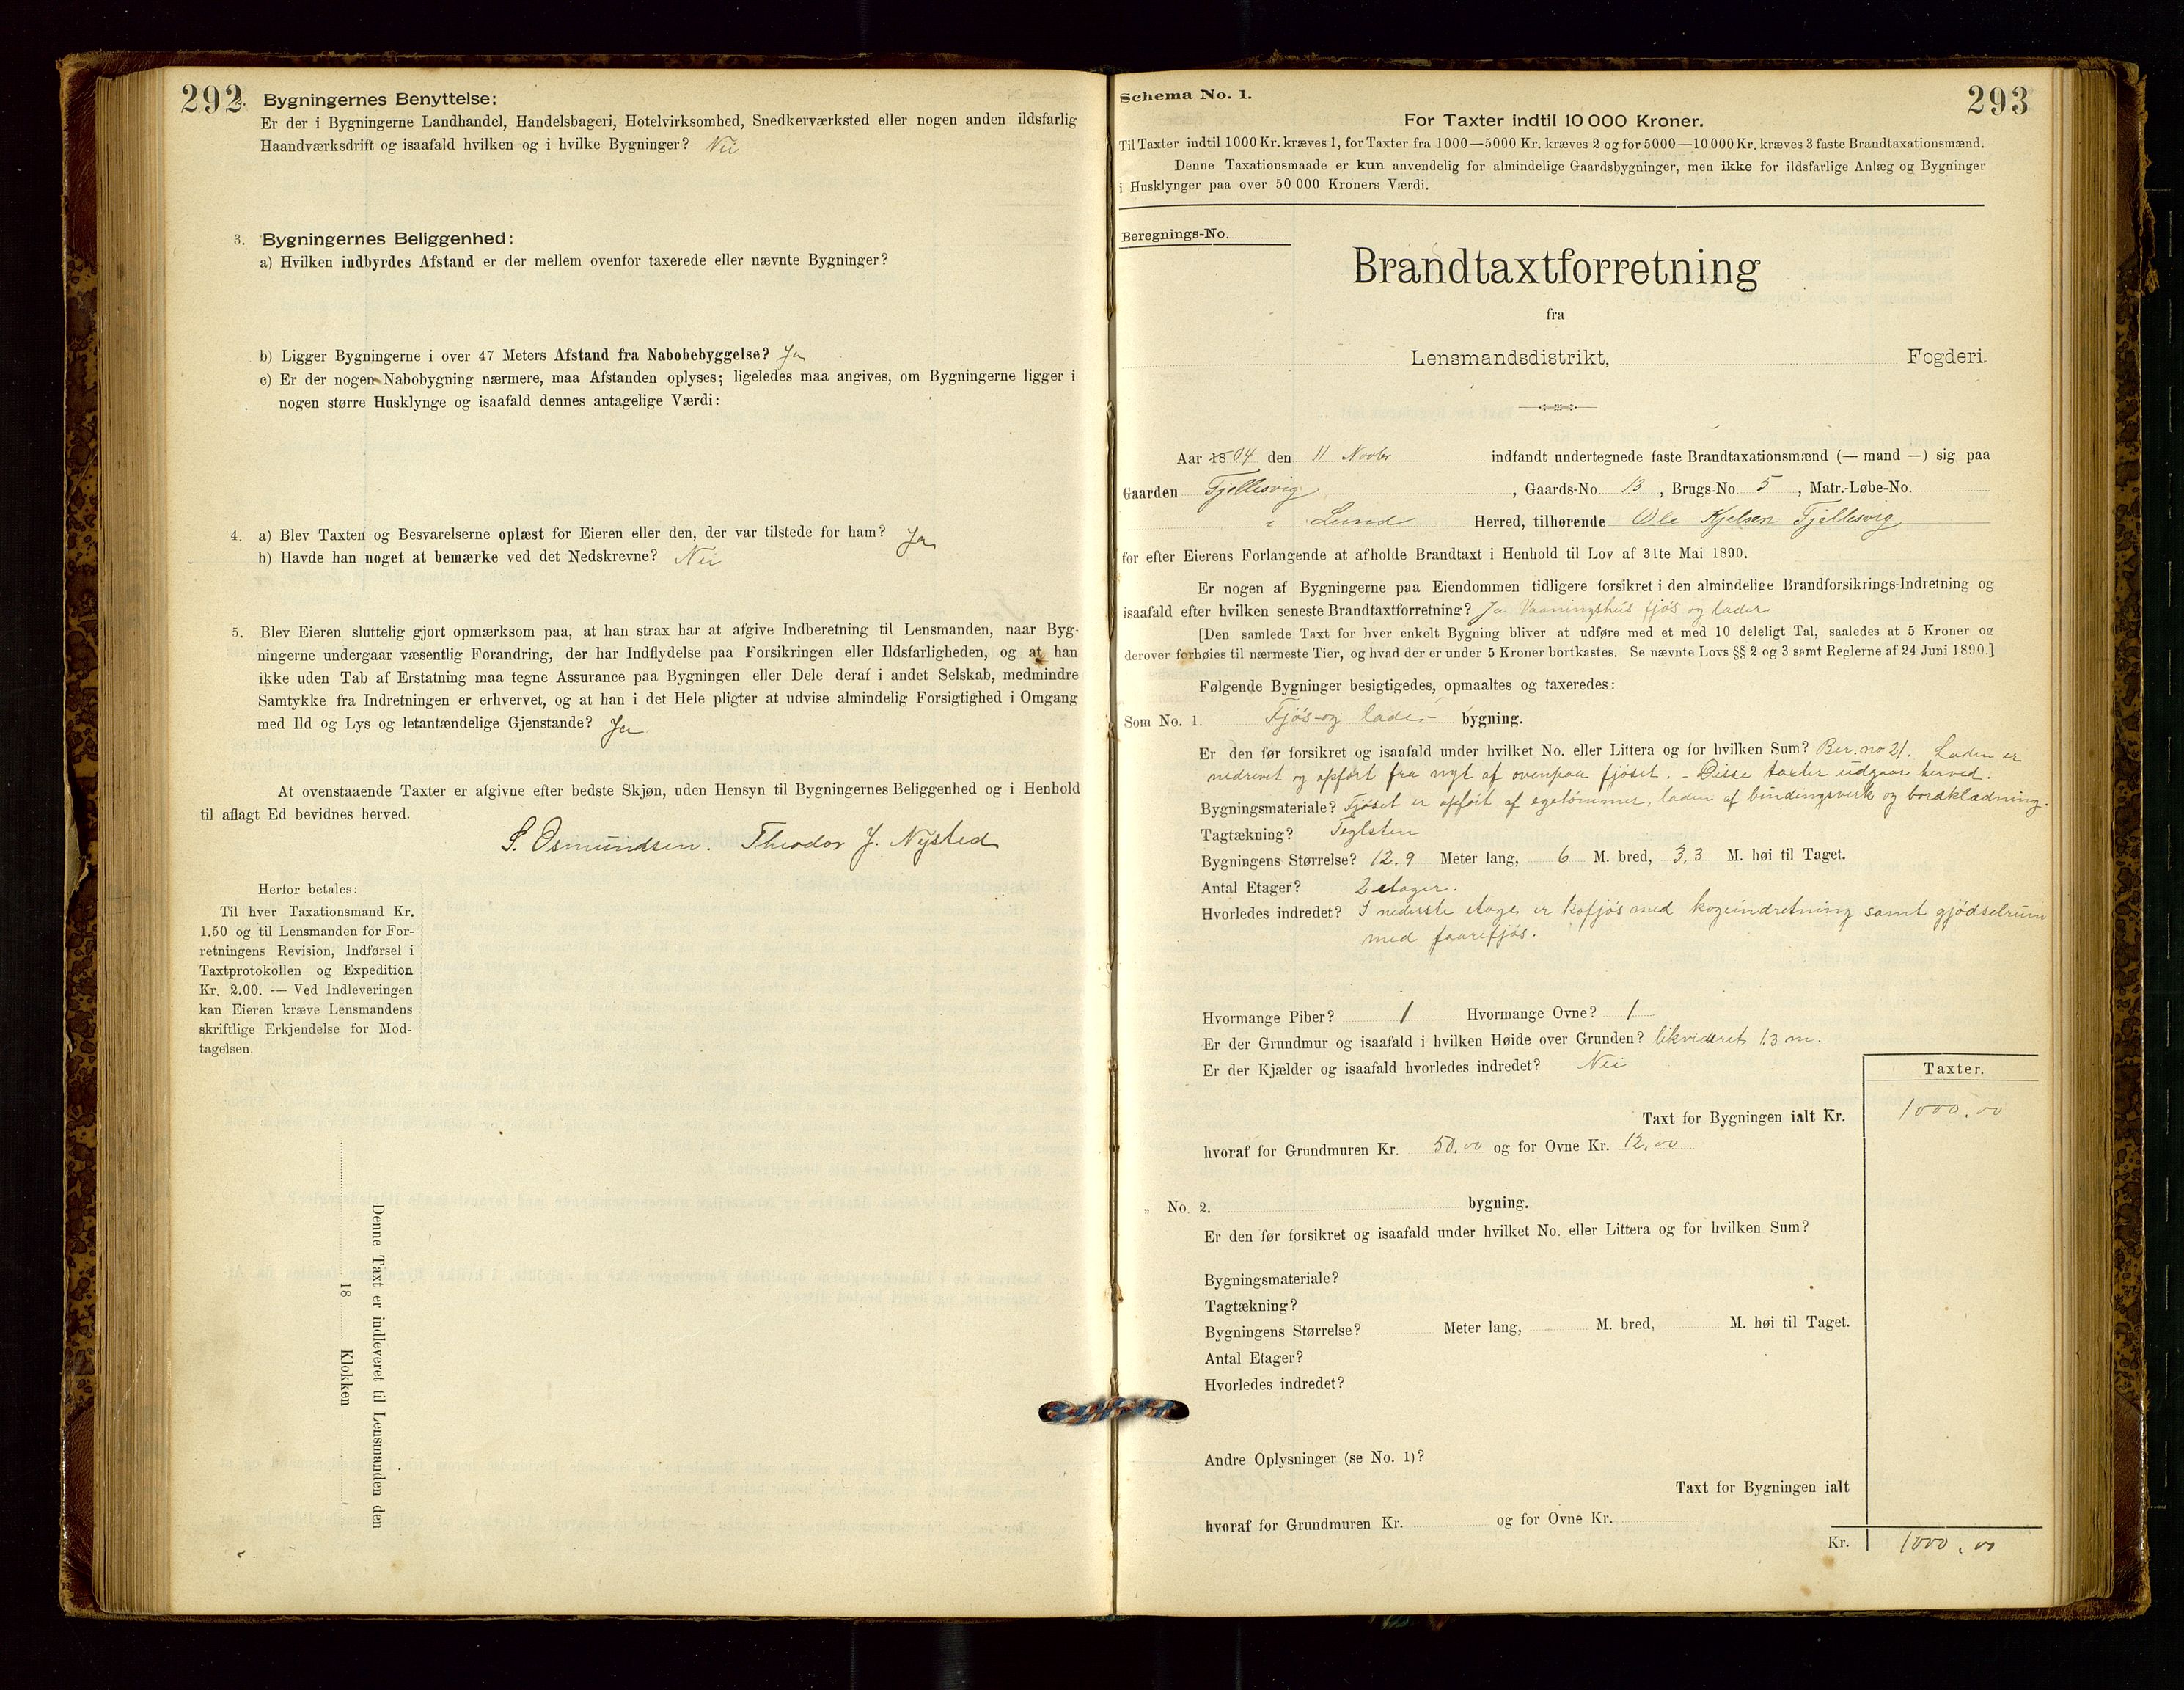 292
2. Bygningernes Benyttelse:
Er der i Bygningerne Landhandel, Handelsbageri, Hotelvirksomhed, Snedkerværksted eller nogen anden ildsfarlig
Haandværksdrift og isaafald hvilken og i hvilke Bygninger? Nei
3. Bygningernes Beliggenhed:
a) Hvilken indbyrdes Afstand er der mellem ovenfor taxerede eller nævnte Bygninger?
b) Ligger Bygningerne i over 47 Meters Afstand fra Nabobebyggelse? Ja
c) Er der nogen Nabobygning nærmere, maa Afstanden oplyses; ligeledes maa angives, om Bygningerne ligger i
nogen større Husklynge og isaafald dennes antagelige Værdi:
4. a) Blev Taxten og Besvarelserne oplæst for Eieren eller den, der var tilstede for ham? Ja
b) Havde han noget at bemærke ved det Nedskrevne? Nei
5. Blev Eieren sluttelig gjort opmærksom paa, at han strax har at afgive Indberetning til Lensmanden, naar Byg-
ningerne undergaar væsentlig Forandring, der har Indflydelse paa Forsikringen eller Ildsfarligheden, og at han
ikke uden Tab af Erstatning maa tegne Assurance paa Bygningen eller Dele deraf i andet Selskab, medmindre
Samtykke fra Indretningen er erhvervet, og at han i det Hele pligter at udvise almindelig Forsigtighed i Omgang
med Ild og Lys og letantændelige Gjenstande? Ja
At ovenstaaende Taxter er afgivne efter bedste Skjøn, uden Hensyn til Bygningernes Beliggenhed og i Henhold
til aflagt Ed bevidnes herved.
S. Osmundsen. Theodor J. Nysted
Herfor betales:
Til hver Taxationsmand Kr.
1.50 og til Lensmanden for For-
retningens Revision, Indførsel i
Taxtprotokollen og Expedition
Kr. 2.00. — Ved Indleveringen
kan Eieren kræve Lensmandens
skriftlige Erkjendelse for Mod-
tagelsen.
Denne Taxt er indleveret til Lensmanden den
18 Klokken
Schema No. 1.
293
For Taxter indtil 10 000 Kroner.
Til Taxter indtil 1000 Kr. kræves 1, for Taxter fra 1000—5000 Kr. kræves 2 og for 5000—10 000 Kr. kræves 3 faste Brandtaxationsmænd.
Denne Taxationsmaade er kun anvendelig for almindelige Gaardsbygninger, men ikke for ildsfarlige Anlæg og Bygninger
i Husklynger paa over 50 000 Kroners Værdi.
Beregnings-No.
Brandtaxtforretning
fra
Lensmandsdistrikt, Fogderi.
Aar 1804 den 11 Novbr indfandt undertegnede faste Brandtaxationsmænd (— mand —) sig paa
Gaarden Fjellesvig, Gaards-No. 13, Brugs-No. 5, Matr.-Løbe-No.
i Lund Herred, tilhørende Ole Kjelsen Fjellesvig
for efter Eierens Forlangende at afholde Brandtaxt i Henhold til Lov af 31te Mai 1890.
Er nogen af Bygningerne paa Eiendommen tidligere forsikret i den almindelige Brandforsikrings-Indretning og
isaafald efter hvilken seneste Brandtaxtforretning? Ja Vaaningshus fjøs og lader
[Den samlede Taxt for hver enkelt Bygning bliver at udføre med et med 10 deleligt Tal, saaledes at 5 Kroner og
derover forhøies til nærmeste Tier, og hvad der er under 5 Kroner bortkastes. Se nævnte Lovs §§ 2 og 3 samt Reglerne af 24 Juni 1890.]
Følgende Bygninger besigtigedes, opmaaltes og taxeredes:
Som No. 1. Fjøs-og lade- bygning.
Er den før forsikret og isaafald under hvilket No. eller Littera og for hvilken Sum? Ber. no 21. Laden er
nedrevet og opført fra nyt af ovenpaa fjøset. - Disse taxter udgaar herved.
Bygningsmateriale? Fjøset er opført af egetømmer, laden af bindingsverk og bordklædning.
Tagtækning? Teglsten
Bygningens Størrelse? 12,9 Meter lang, 6 M. bred, 3,3 M. høi til Taget.
Antal Etager? 2 etager.
Hvorledes indredet? I nederste etage er kofjøs med kogeindretning samt gjødselrum
med faarefjøs.
Hvormange Piber? 1 Hvormange Ovne? 1
Er der Grundmur og isaafald i hvilken Høide over Grunden? likvideret 1.3 m.
Er der Kjælder og isaafald hvorledes indredet? Nei
Taxter.
Taxt for Bygningen ialt Kr. 1000.00
hvoraf for Grundmuren Kr. 50.00 og for Ovne Kr. 12.00
" No. 2. bygning.
Er den før forsikret og isaafald under hvilket No. eller Littera og for hvilken Sum?
Bygningsmateriale?
Tagtækning?
Bygningens Størrelse? Meter lang, M. bred, M. høi til Taget.
Antal Etager?
Hvorledes indredet?
Andre Oplysninger (se No. 1)?
Taxt for Bygningen ialt
hvoraf for Grundmuren Kr. og for Ovne Kr.
Kr. 1000.00